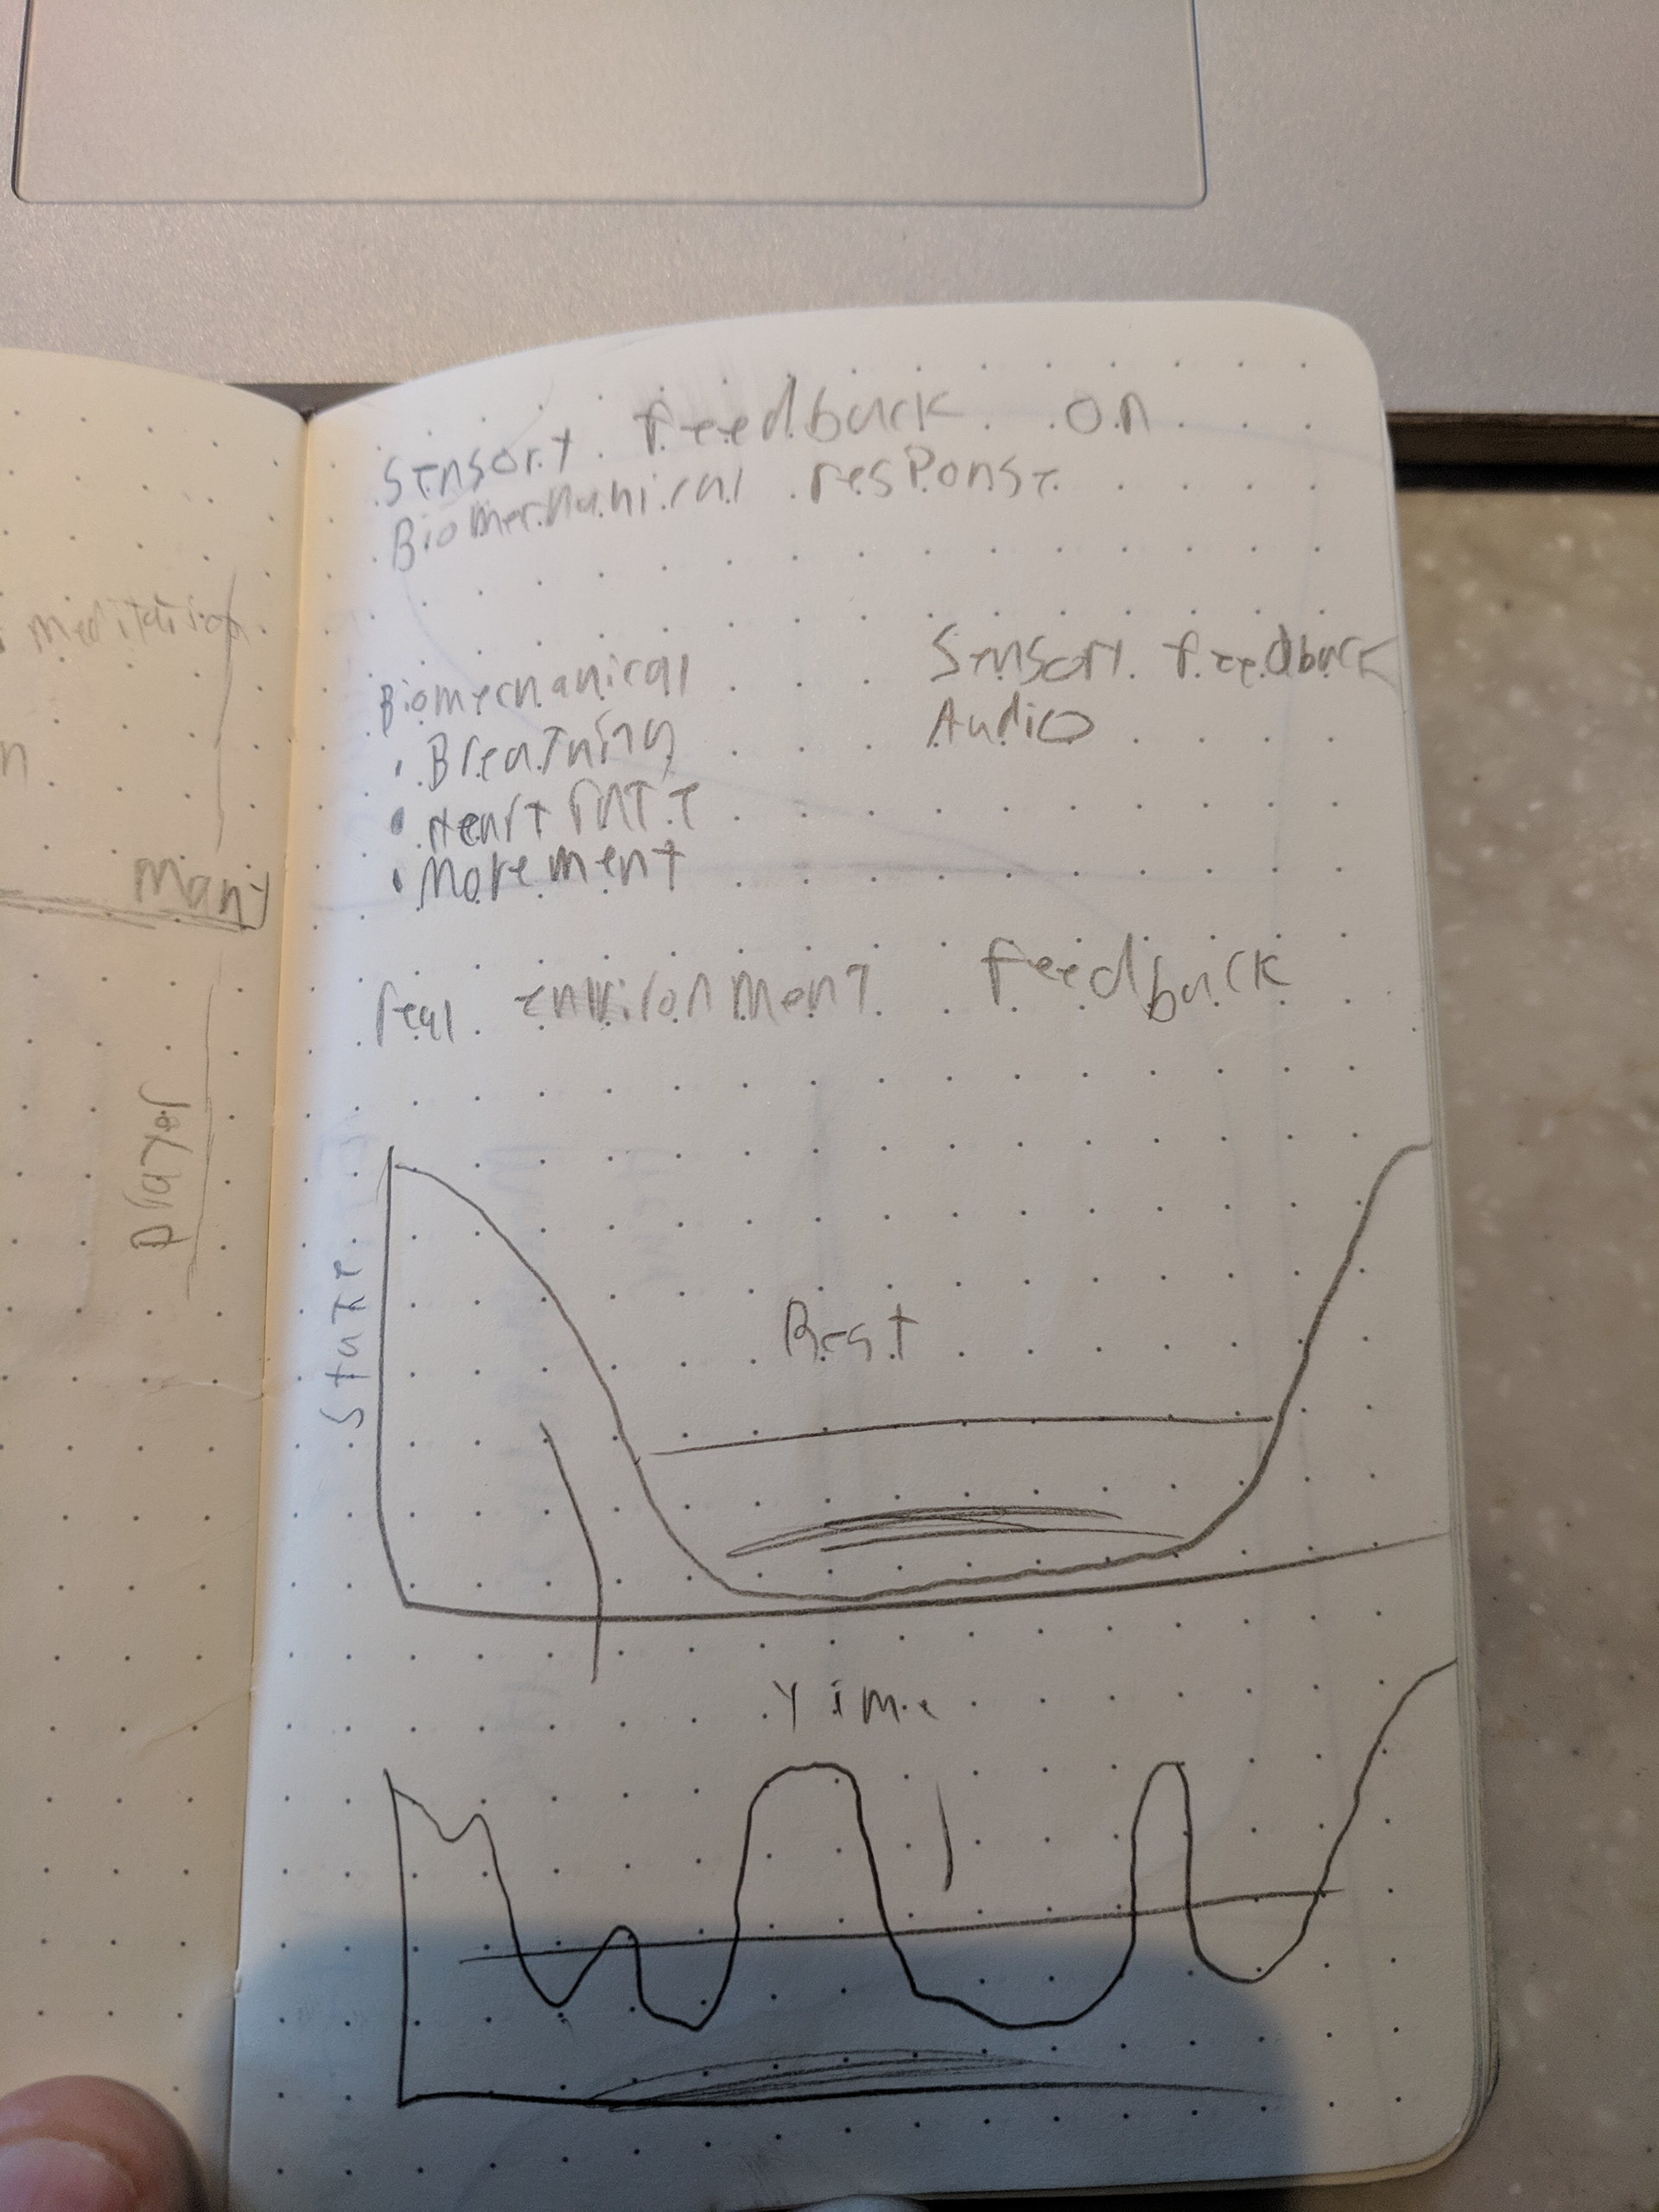 Sensory feedback on
Biomechanical response
Biomechanical
Sensory feedback
• Breathing
Audio
• Heart rate
• Movement
real environment feedback
State
Rest
Time
meditation
n
Many
Player